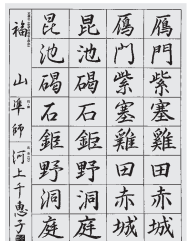 鴈門紫塞雞田赤城
鴈門紫塞雞田赤城
昆池碣石鉅野洞庭
昆池碣石鉅野洞庭
福山 準師 河上千恵子